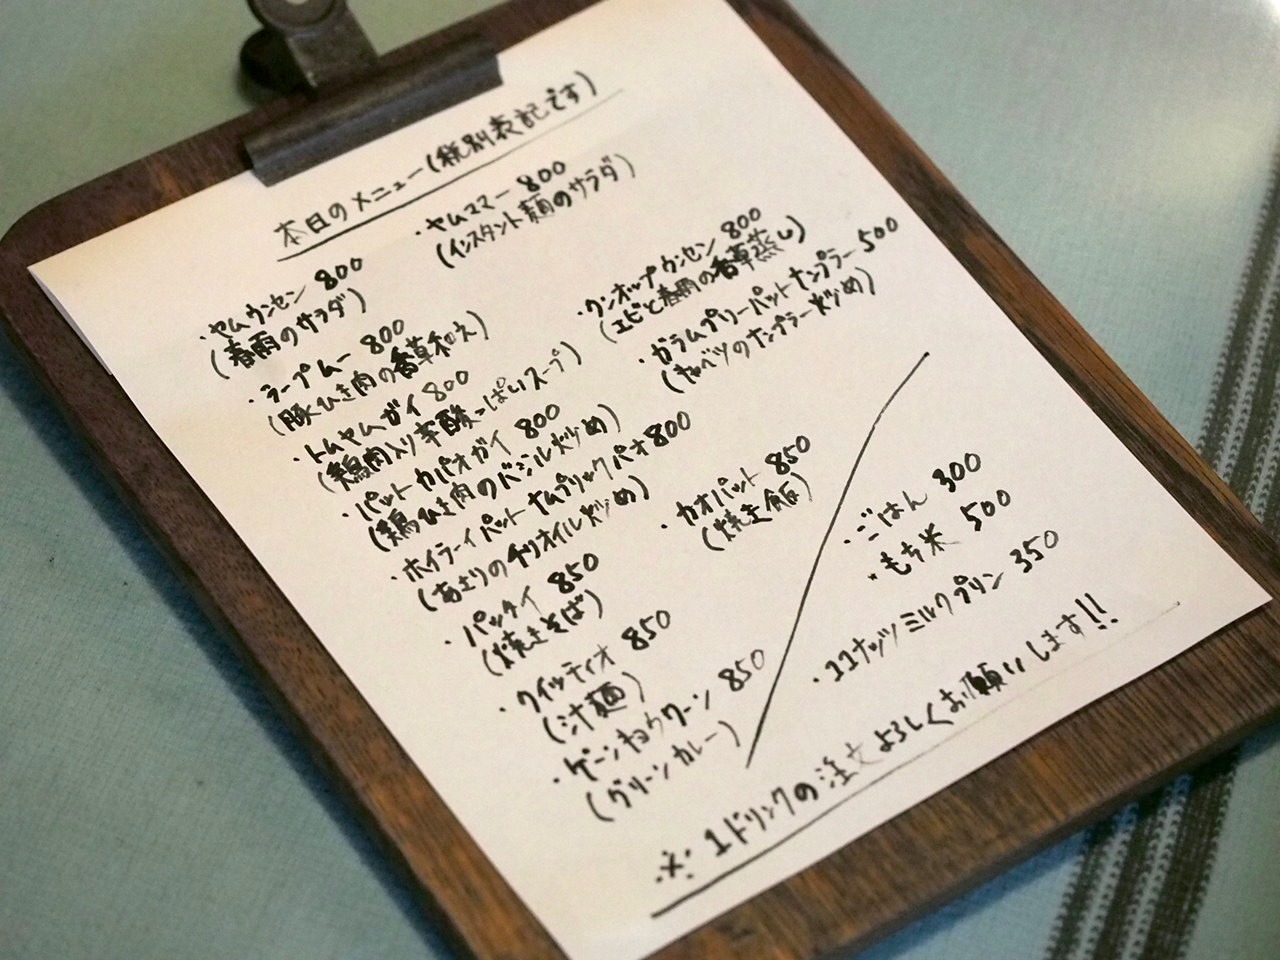 本日のメニュー(税別表記です)
・ヤムウンセン 800
(春雨のサラダ)
・ヤムママー 800
(インスタント麺のサラダ)
・ラープムー 800
(豚ひき肉の香草和え)
・クンオップウンセン 800
(エビと春雨の香草蒸し)
・トムヤムガイ 800
(鶏肉入り辛酸っぱいスープ)
・ガラムプリーパットナンプラー 500
(キャベツのナンプラー炒め)
・パットガパオガイ 800
(鶏ひき肉のバジル炒め)
・ホイラーイパットナムプリックパオ 800
(あさりのチリオイル炒め)
・パッタイ 850
(焼きそば)
・カオパット 850
(焼き飯)
・クイッティオ 850
(汁麺)
・ゲーンキョウワーン 850
(グリーンカレー)
・ごはん 300
・もち米 500
・ココナッツミルクプリン 350
※1ドリンクの注文よろしくお願いします!!